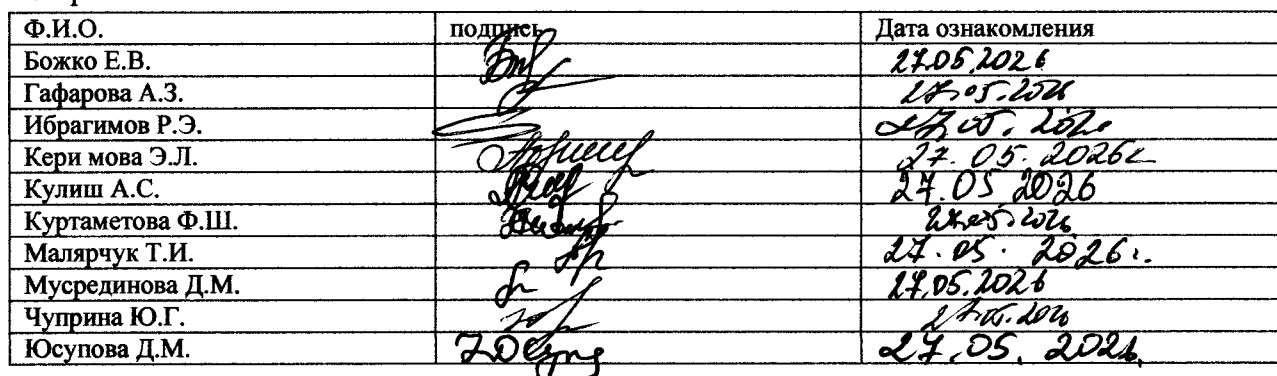 Ф.И.О. подпись Дата ознакомления
Божко Е.В. 27.05.2026
Гафарова А.З. 27.05.2026
Ибрагимов Р.Э. 27.05.
Кери мова Э.Л. 27. 05. 2026г
Кулиш А.С. 27.05 2026
Куртаметова Ф.Ш. 27.05.2026
Малярчук Т.И. 27. 05. 2026г.
Мусрединова Д.М. 27.05.2026
Чуприна Ю.Г. 27.05.2026
Юсупова Д.М. 27.05. 2026.